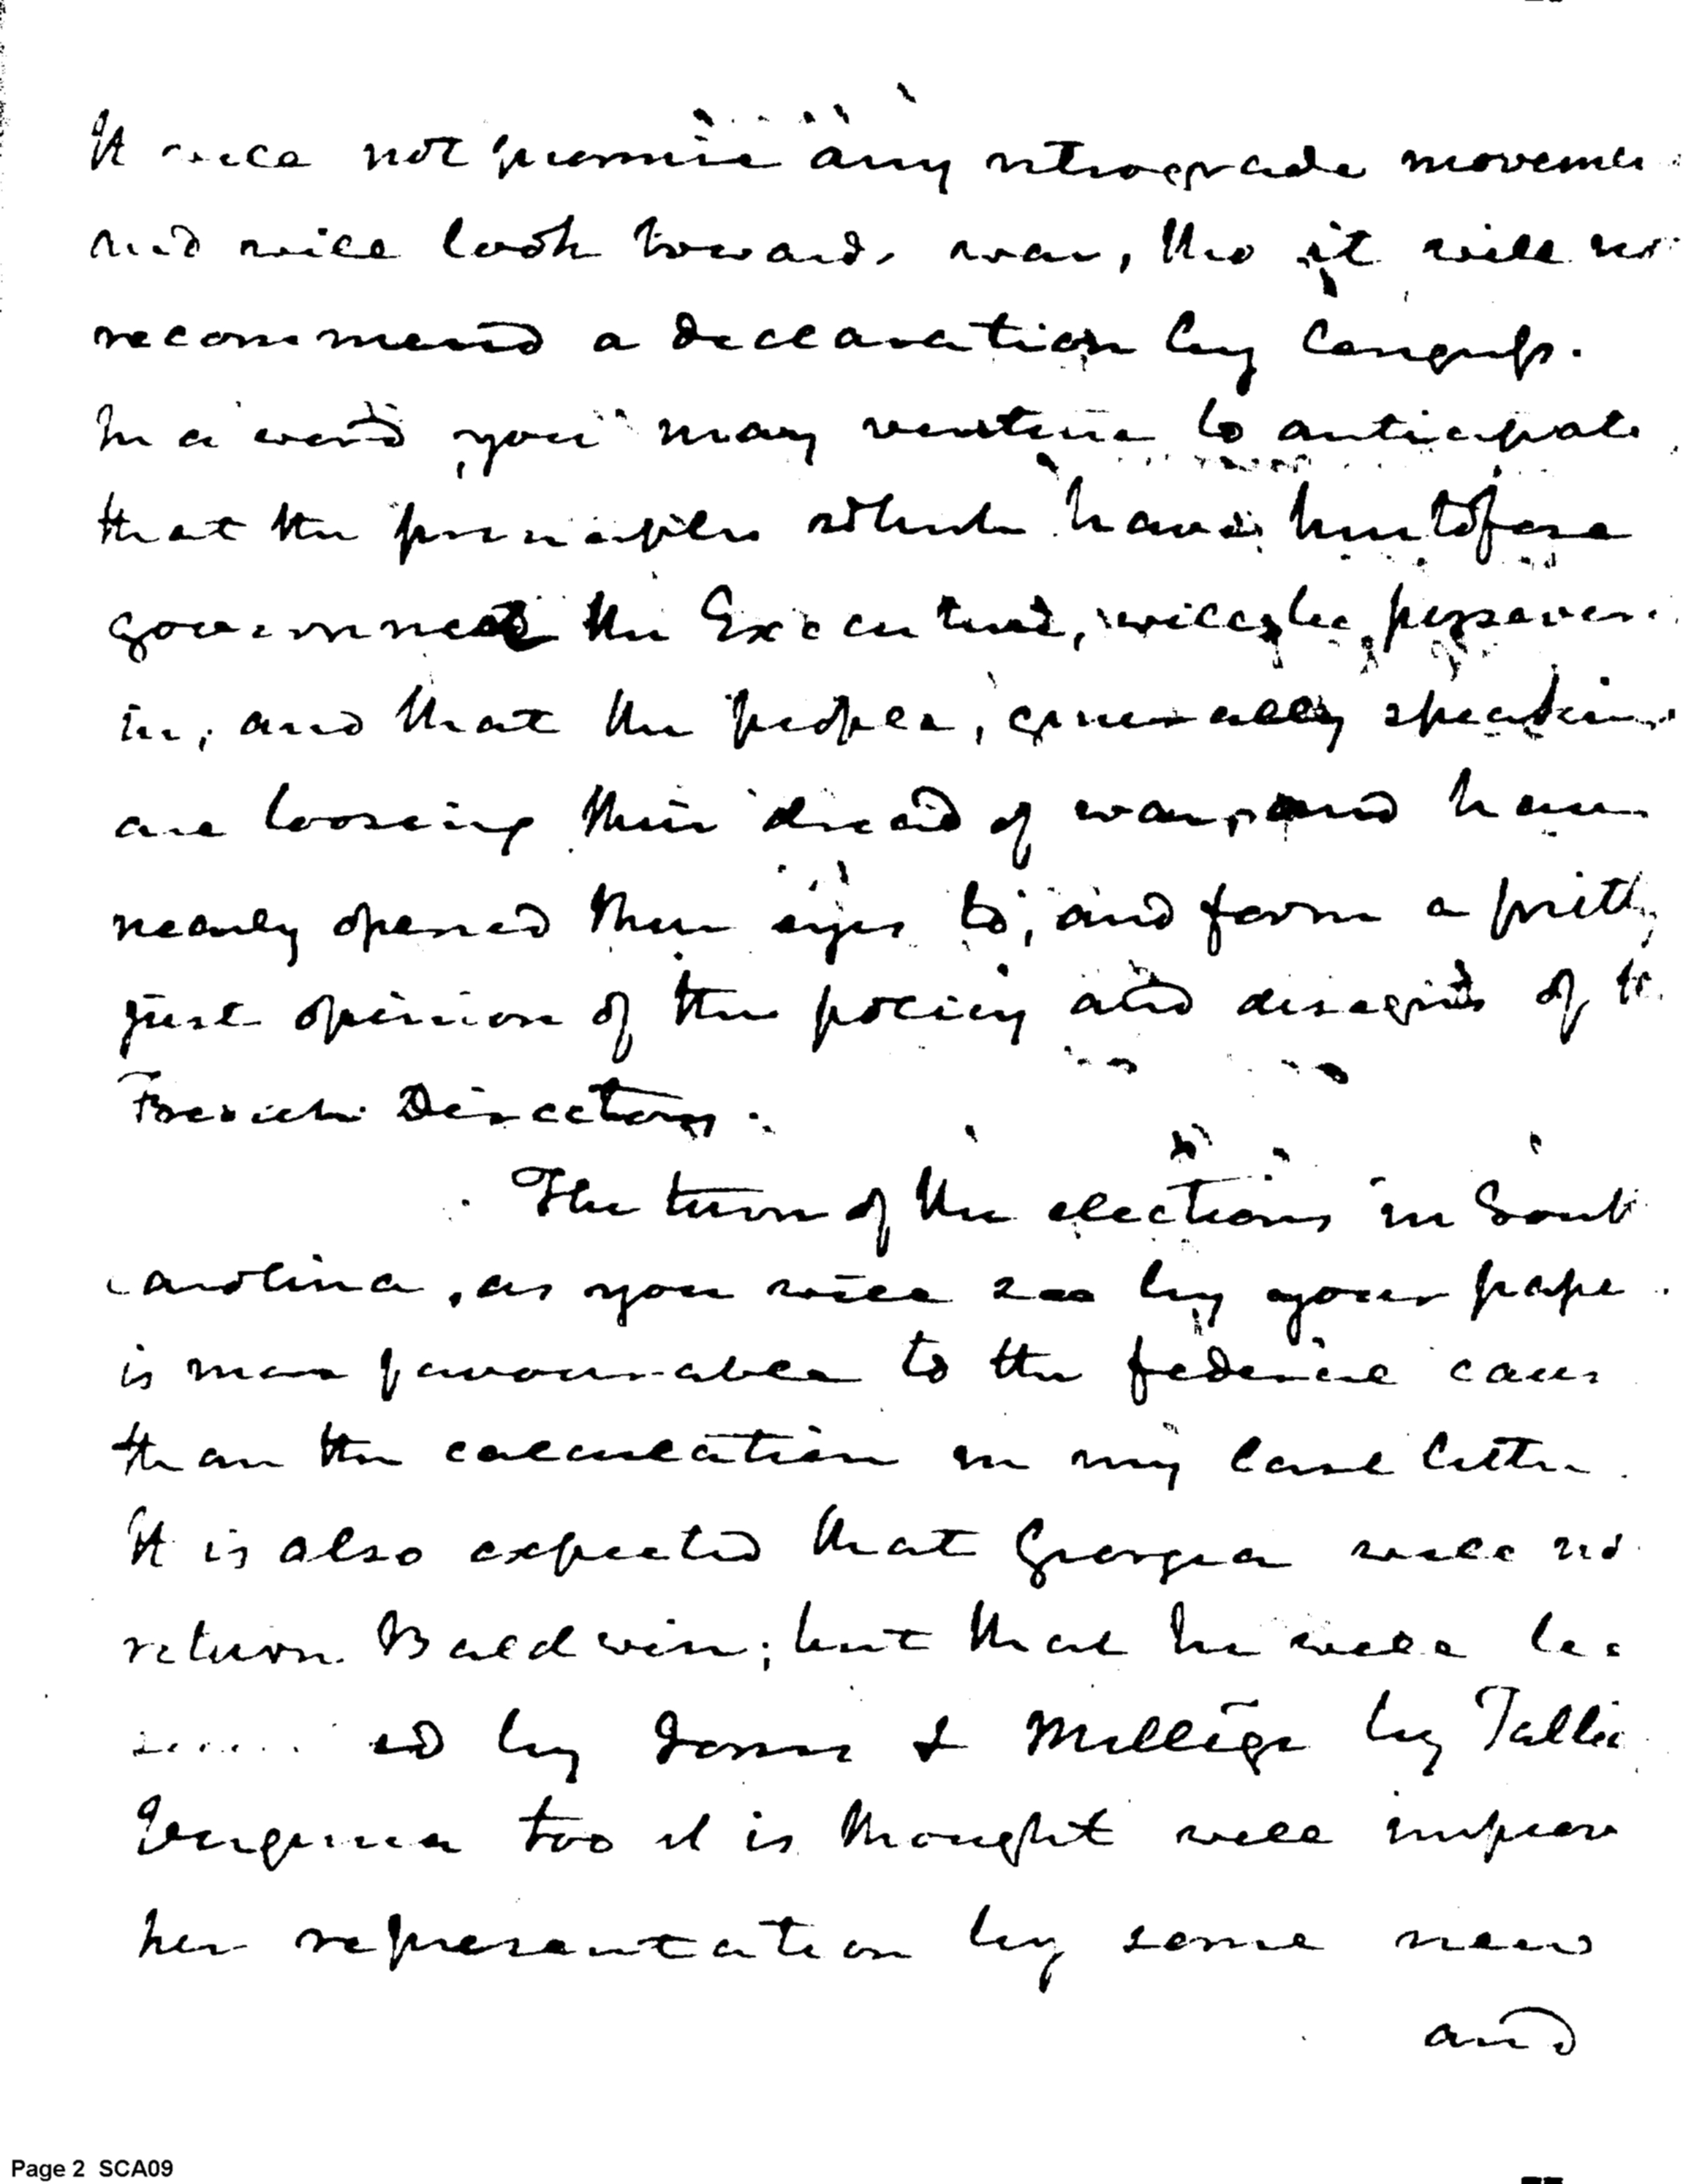 It will not promise any retrograde moveme
and will look towards war, tho it will no
recommend a declaration by Congress.
In a word you may venture to anticipate
that the principles which have heretofore
governned the Executive, will be persever
in, and that the people, generally speakin
are loosing their dread of war, and have
nearly opened their eyes to, and form a pretty
just opinion of the policy and designs of th
French Directory.
The turn of the elections in Sout
Carolina, as you will see by your pape
is more favourable to the federal caus
than the calculation in my last letter.
It is also expected that Georgia will no
return Baldwin; but that he will be
ed by Jones & Millige by Tallia
Virginia too it is thought will improv
her representation by some new
and
Page 2 SCA09